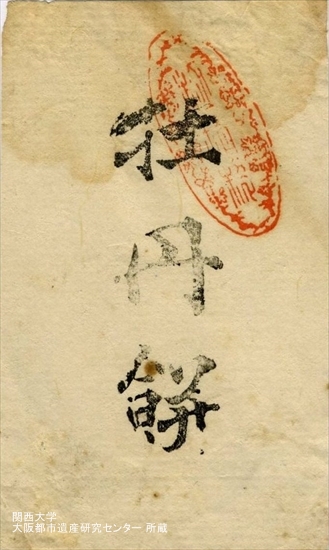 牡丹餅
関西大学
大阪都市遺産研究センター 所蔵